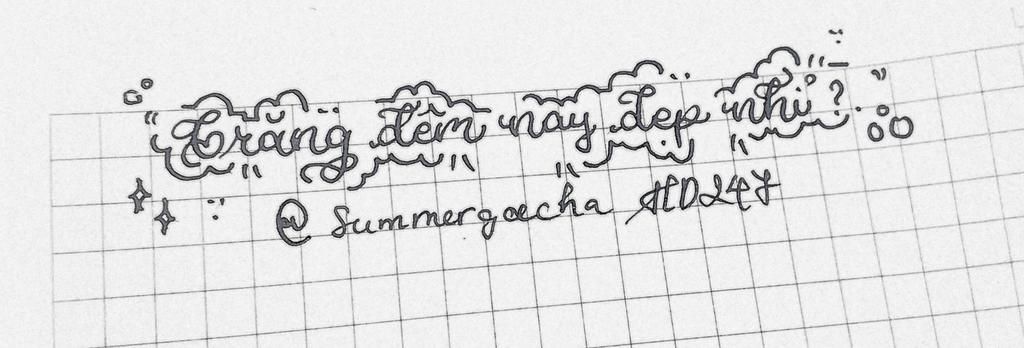 Trăng đêm nay đẹp nhỉ?
@ Summergacha HD247